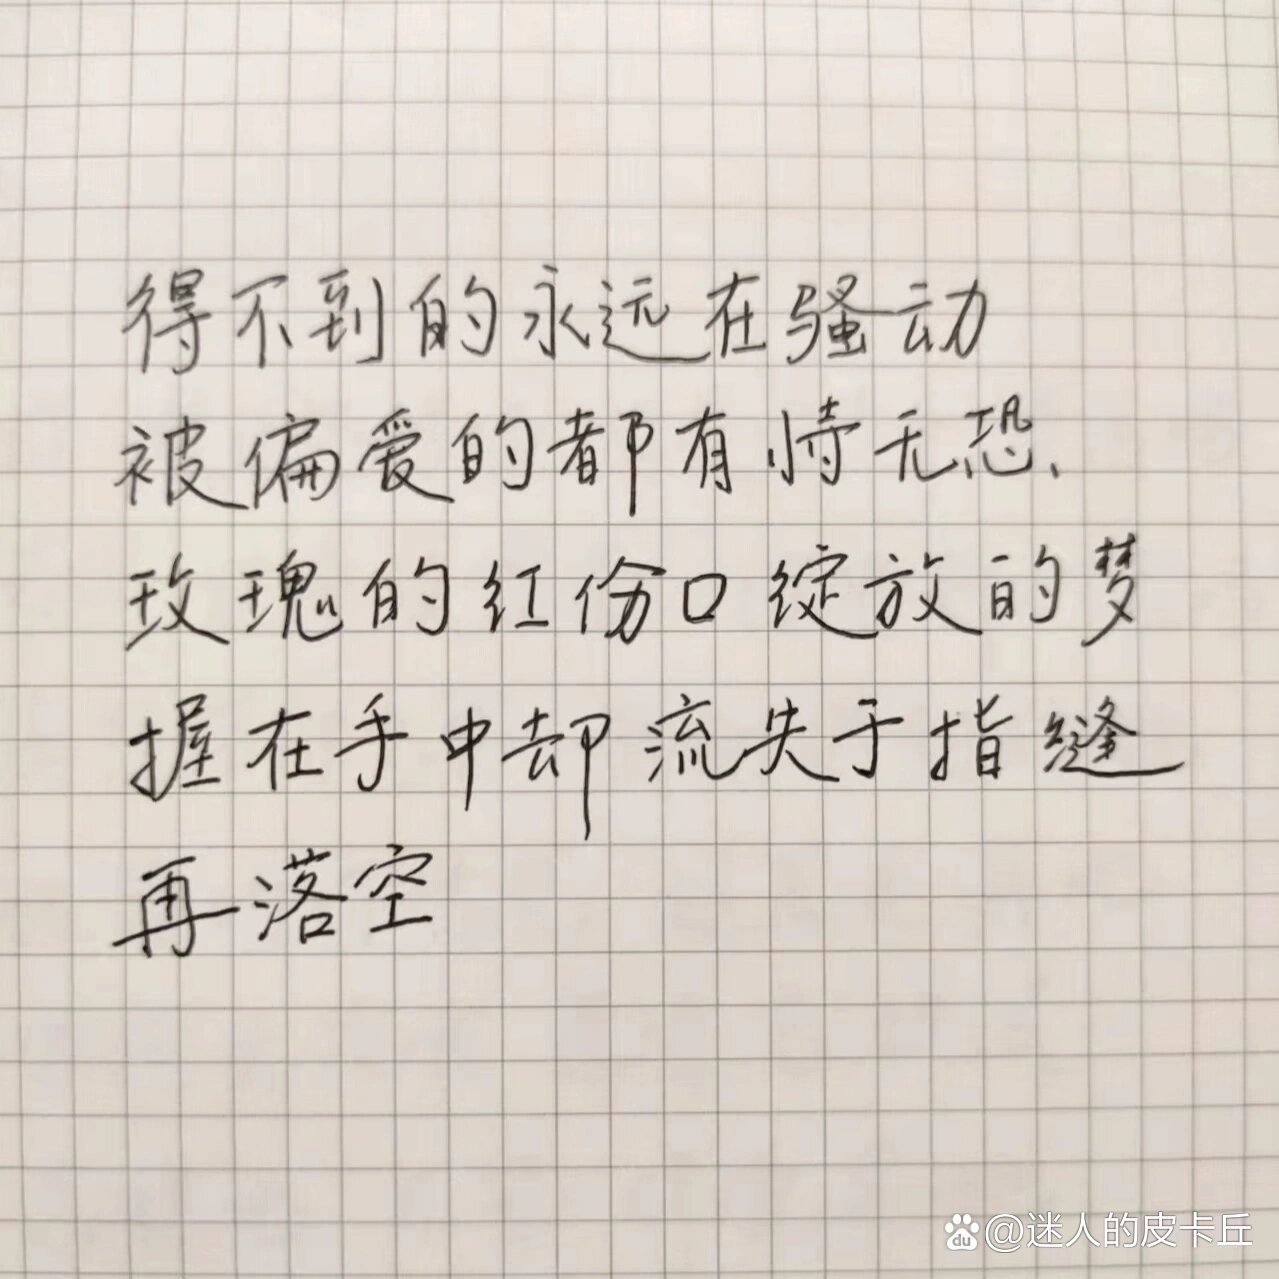 得不到的永远在骚动
被偏爱的都有恃无恐、
玫瑰的红伤口绽放的梦
握在手中却流失于指缝
再落空
@迷人的皮卡丘